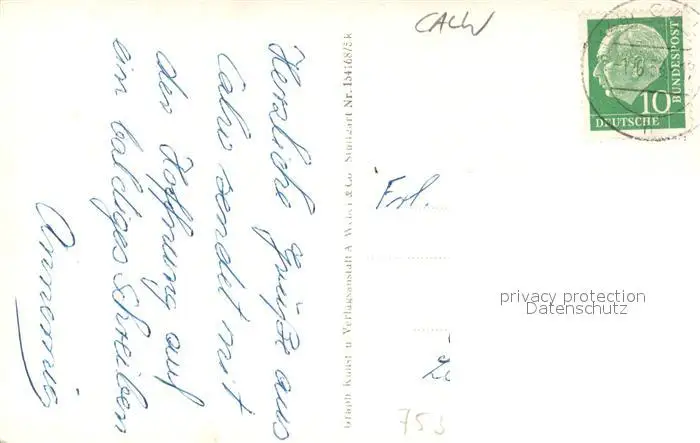 CALW
DEUTSCHE
BUNDESPOST
10
Herzliche Grüße aus
Calw sendet mit
der Hoffnung auf
ein baldiges Schreiben
Annemie
Graph. Kunst u. Verlagsanstalt A. Weber & Co. Stuttgart Nr. 154168/5 R
Frl.
privacy protection
Datenschutz
753